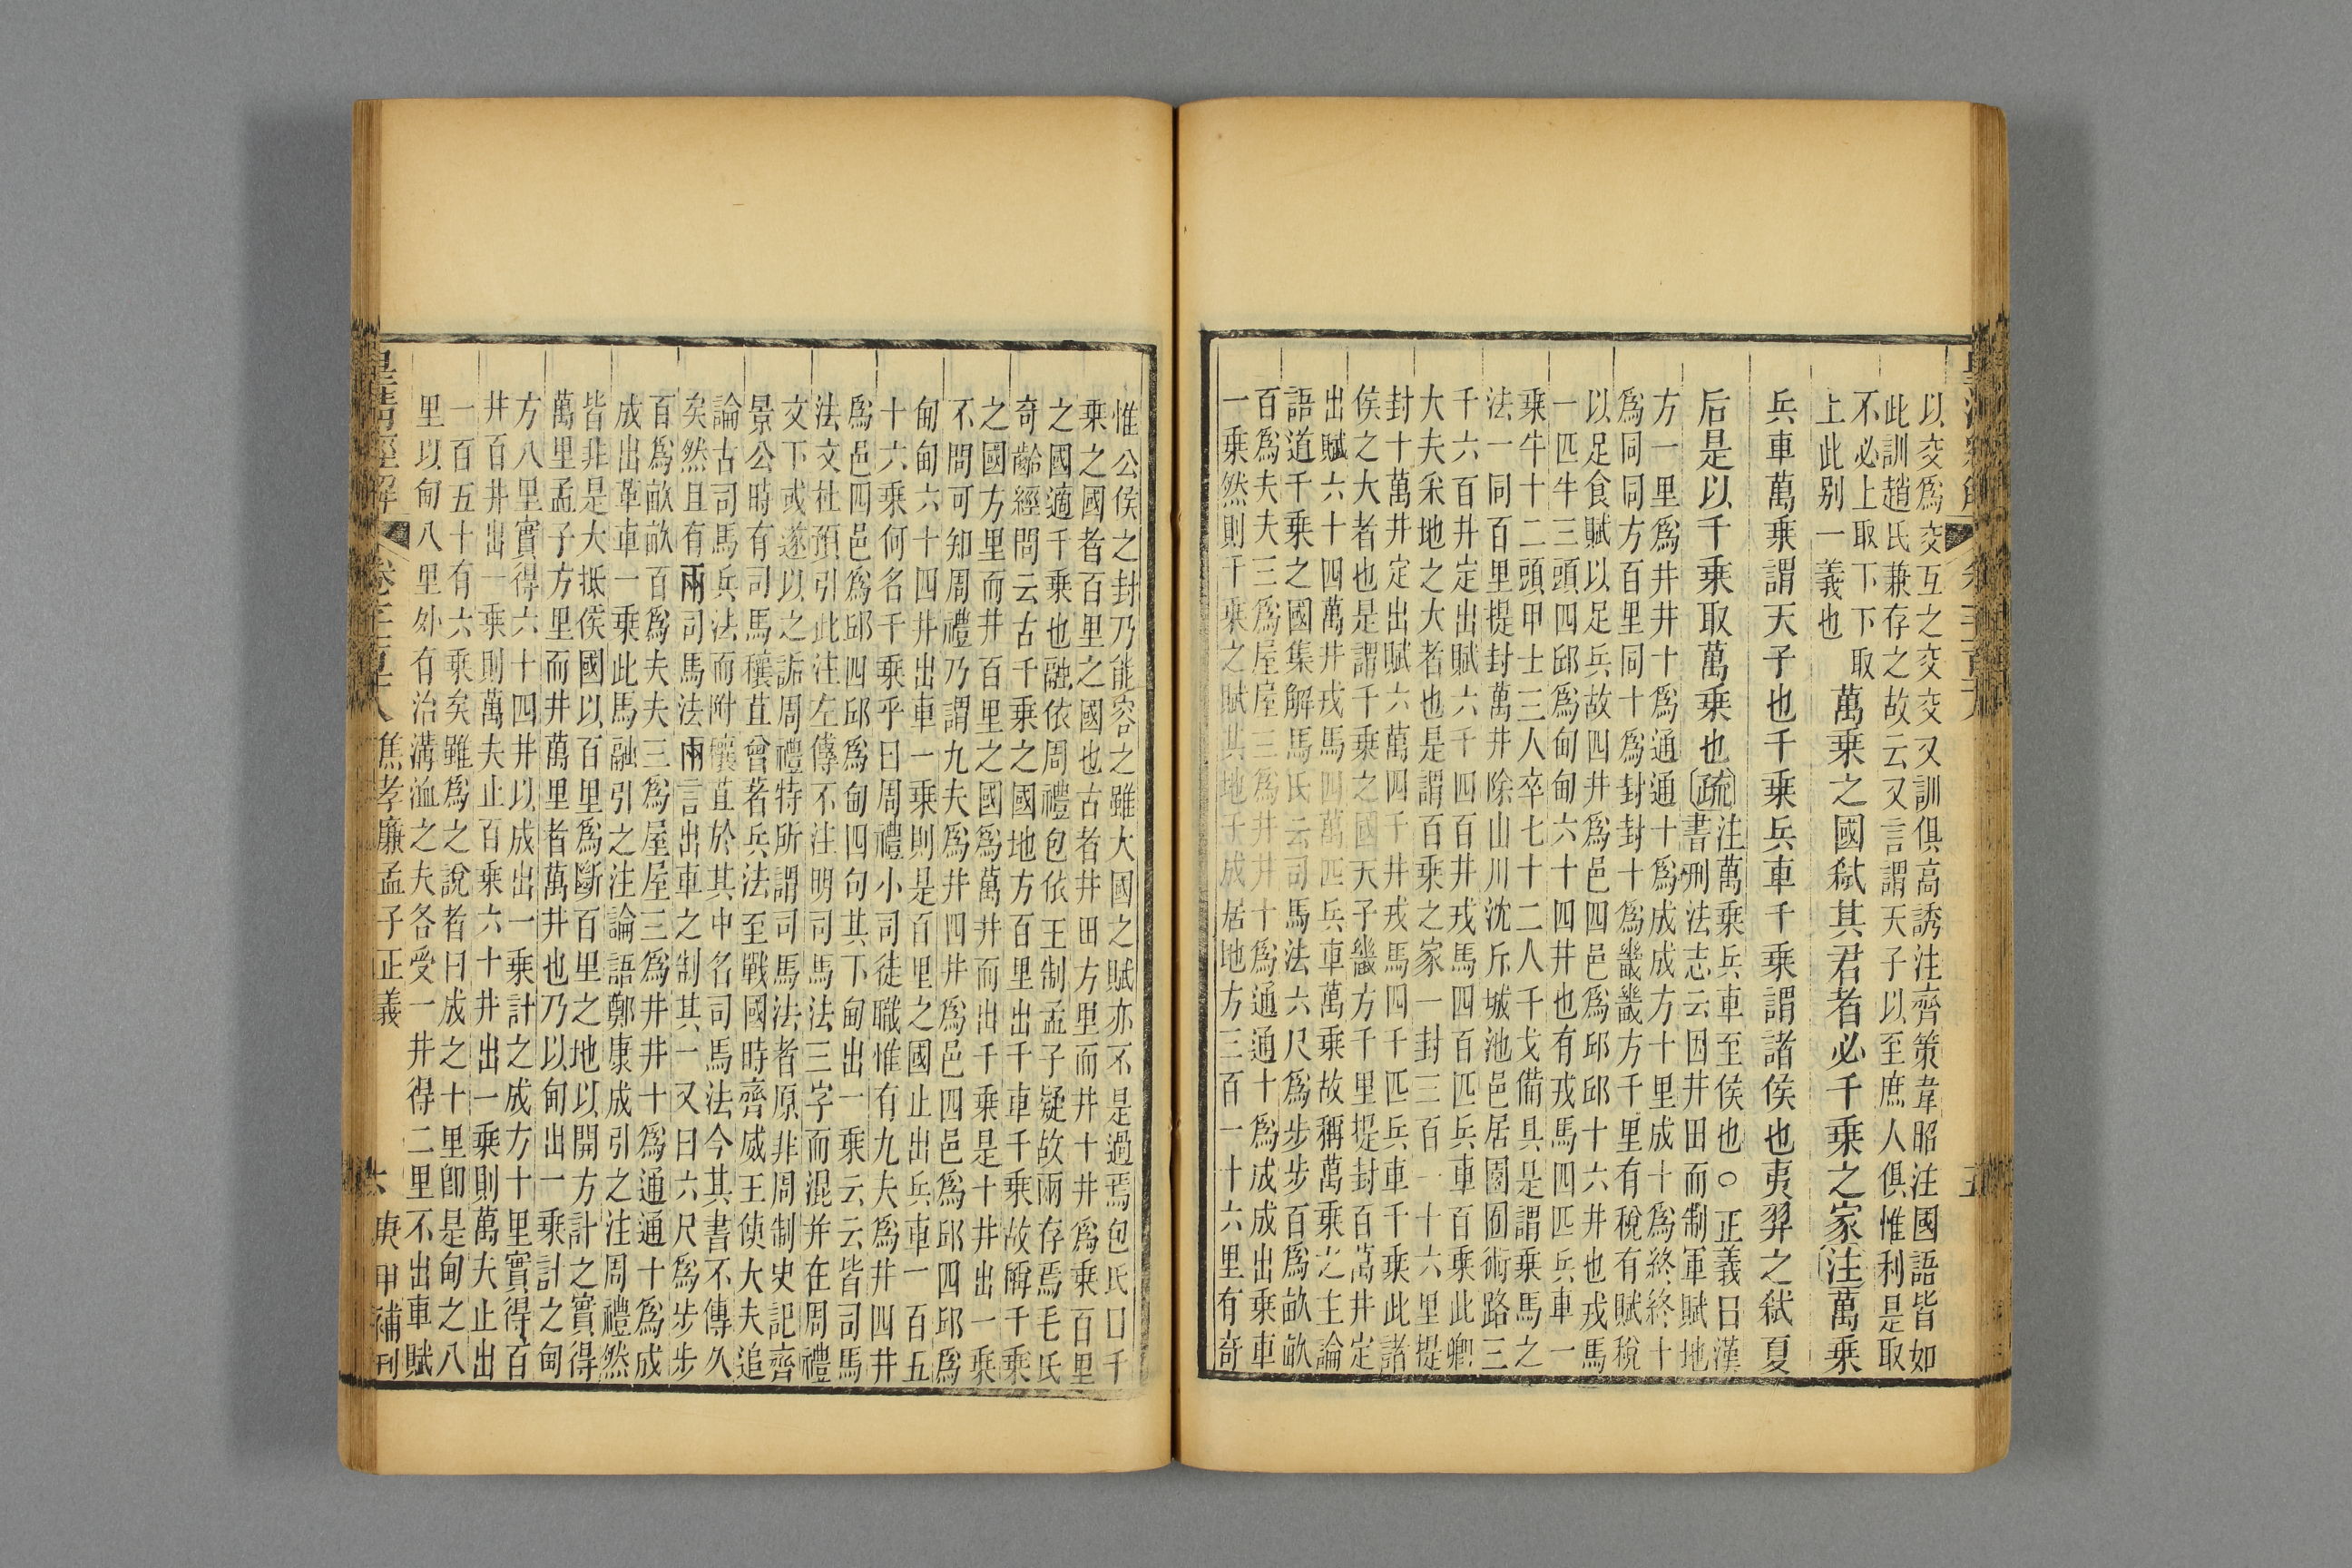 以交爲交互之交交又訓俱高誘注齊策韋昭注國語皆如
此訓趙氏兼存之故云又言謂天子以至庶人俱惟利是取
不必上取下下取
上此别一義也
萬乘之國弑其君者必千乘之家注萬乘
兵車萬乘謂天子也千乘兵車千乘謂諸侯也夷羿之弑夏
后是以千乘取萬乘也疏
注萬乘兵車至侯也○正義曰漢
書刑法志云因井田而制軍賦地
方一里爲井井十爲通通十爲成成方十里成十爲終終十
爲同同方百里同十爲封封十爲畿畿方千里有稅有賦稅
以足食賦以足兵故四井爲邑四邑爲邱邱十六井也戎馬
一匹牛三頭四邱爲甸甸六十四井也有戎馬四匹兵車一
乘牛十二頭甲士三人卒七十二人干戈備具是謂乘馬之
法一同百里提封萬井除山川沈斥城池邑居園囿術路三
千六百井定出賦六千四百井戎馬四百匹兵車百乘此卿
大夫采地之大者也是謂百乘之家一封三百一十六里提
封十萬井定出賦六萬四千井戎馬四千匹兵車千乘此諸
侯之大者也是謂千乘之國天子畿方千里提封百萬井定
出賦六十四萬井戎馬四萬匹兵車萬乘故稱萬乘之主論
語道千乘之國集解馬氏云司馬法六尺爲步步百爲畝畝
百爲夫夫三爲屋屋三爲井井十爲通通十爲成成出乘車
一乘然則千乘之賦其地千成居地方三百一十六里有奇
惟公侯之封乃能容之雖大國之賦亦不是過焉包氏曰千
乘之國者百里之國也古者井田方里而井十井爲乘百里
之國適千乘也融依周禮包依王制孟子疑故兩存焉毛氏
奇齡經問云古千乘之國地方百里出千車千乘故稱千乘
之國方里而井百里之國爲萬井而出千乘是十井出一乘
不問可知周禮乃謂九夫爲井四井爲邑四邑爲邱四邱爲
甸甸六十四井出車一乘則是百里之國止出兵車一百五
十六乘何名千乘乎曰周禮小司徒職惟有九夫爲井四井
爲邑四邑爲邱四邱爲甸四句其下甸出一乘云云皆司馬
法文杜預引此注左傳不注明司馬法三字而混并在周禮
文下或遂以之詬周禮特所謂司馬法者原非周制史記齊
景公時有司馬穰苴曾著兵法至戰國時齊威王使大夫追
論古司馬兵法而附穰苴於其中名司馬法今其書不傳久
矣然且有兩司馬法兩言出車之制其一又曰六尺爲步步
百爲畝畝百爲夫夫三爲屋屋三爲井井十爲通通十爲成
成出革車一乘此馬融引之注論語鄭康成引之注周禮然
皆非是大抵侯國以百里爲斷百里之地以開方計之實得
萬里孟子方里而井萬里者萬井也乃以甸出一乘計之甸
方八里實得六十四井以成出一乘計之成方十里實得百
井百井出一乘則萬夫止百乘六十井出一乘則萬夫止出
一百五十有六乘矣雖爲之說者曰成之十里卽是甸之八
里以甸八里外有治溝洫之夫各受一井得二里不出車賦
皇淸經解 卷 焦孝廉孟子正義 庚申補刊